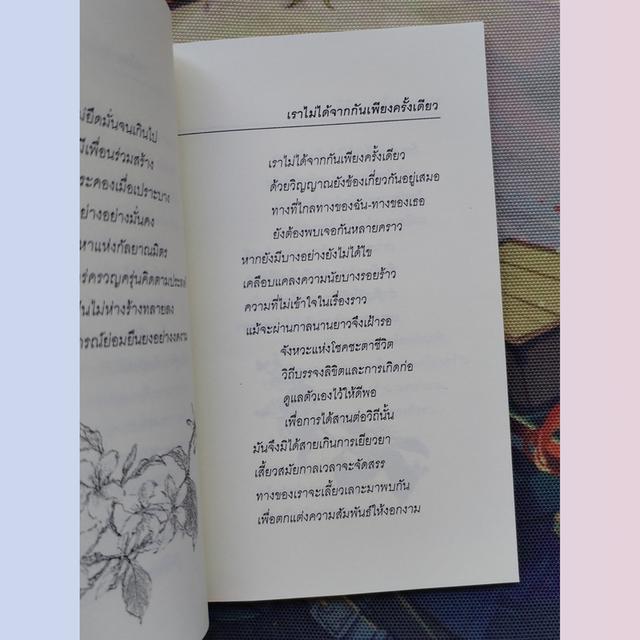 ยึดมั่นจนเกินไป
มีเพื่อนร่วมสร้าง
ระคองเมื่อเปราะบาง
ย่างอย่างมั่นคง
หาแห่งกัลยาณมิตร
ร่ครวญครุ่นคิดตามประสงค์
ันไม่ห่างร้างทลายลง
ารณ์ย่อมยืนยงอย่างงดงาม
เราไม่ได้จากกันเพียงครั้งเดียว
เราไม่ได้จากกันเพียงครั้งเดียว
ด้วยวิญญาณยังข้องเกี่ยวกันอยู่เสมอ
ทางที่ไกลทางของฉัน-ทางของเธอ
ยังต้องพบเจอกันหลายคราว
หากยังมีบางอย่างยังไม่ได้ไข
เคลือบแคลงความนัยบางรอยร้าว
ความที่ไม่เข้าใจในเรื่องราว
แม้จะผ่านกาลนานยาวจึงเฝ้ารอ
จังหวะแห่งโชคชะตาชีวิต
วิถีบรรจงลิขิตและการเกิดก่อ
ดูแลตัวเองไว้ให้ดีพอ
เพื่อการได้สานต่อวิถีนั้น
มันจึงมิได้สายเกินการเยียวยา
เสี้ยวสมัยกาลเวลาจะจัดสรร
ทางของเราจะเลี้ยวเลาะมาพบกัน
เพื่อตกแต่งความสัมพันธ์ให้งอกงาม